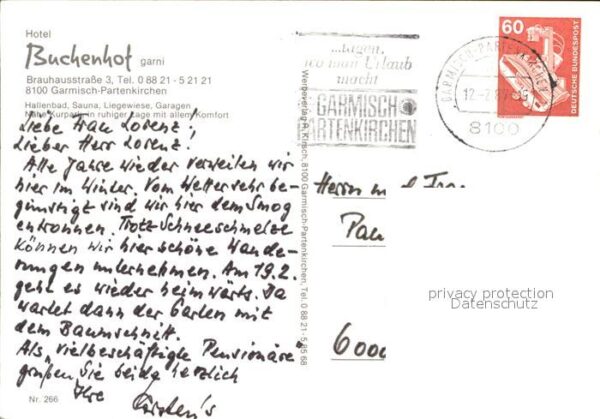 Hotel
Buchenhof garni
Brauhausstraße 3, Tel. 0 88 21 - 5 21 21
8100 Garmisch-Partenkirchen
Hallenbad, Sauna, Liegewiese, Garagen
Nähe Kurpark in ruhiger Lage mit allem Komfort
Liebe Frau Lorenz!
Lieber Herr Lorenz!
Alle Jahre wieder verweilen wir
hier im Winter. Vom Wetter sehr be-
günstigt sind wir hier dem Smog
entronnen. Trotz Schneeschmelze
können wir hier schöne Wande-
rungen unternehmen. Am 19.2.
geht es wieder heimwärts. Da
wartet dann der Garten mit
dem Baumschnitt.
Als "vielbeschäftigte Pensionäre"
grüßen Sie beide herzlich
Ihre
Nr. 266
Werbeverlag R. Kirsch, 8100 Garmisch-Partenkirchen, Tel. 0 88 21 - 5 85 68
...tagen,
wo man Urlaub
macht
GARMISCH
PARTENKIRCHEN
GARMISCH-PARTENKIRCHEN
8100
60
DEUTSCHE BUNDESPOST
Herrn
6000
privacy protection
Datenschutz